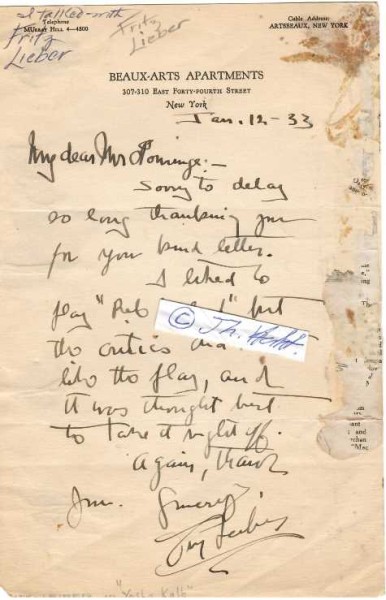 I talked with
Fritz
Lieber
Fritz
Lieber
Telephone
MURRAY HILL 4-4800
Cable Address:
ARTBEAUX, NEW YORK
BEAUX-ARTS APARTMENTS
307-310 EAST FORTY-FOURTH STREET
New York
Jan. 12-33
My dear Mr
Sorry to delay
so long thanking you
for your kind letter.
I liked to
play "Red but
© Th.
the critics did
like the play, and
it was thought best
to take it right off.
Again, thank
you. Sincerely
Fritz Leiber
"Yoshe Kalb"